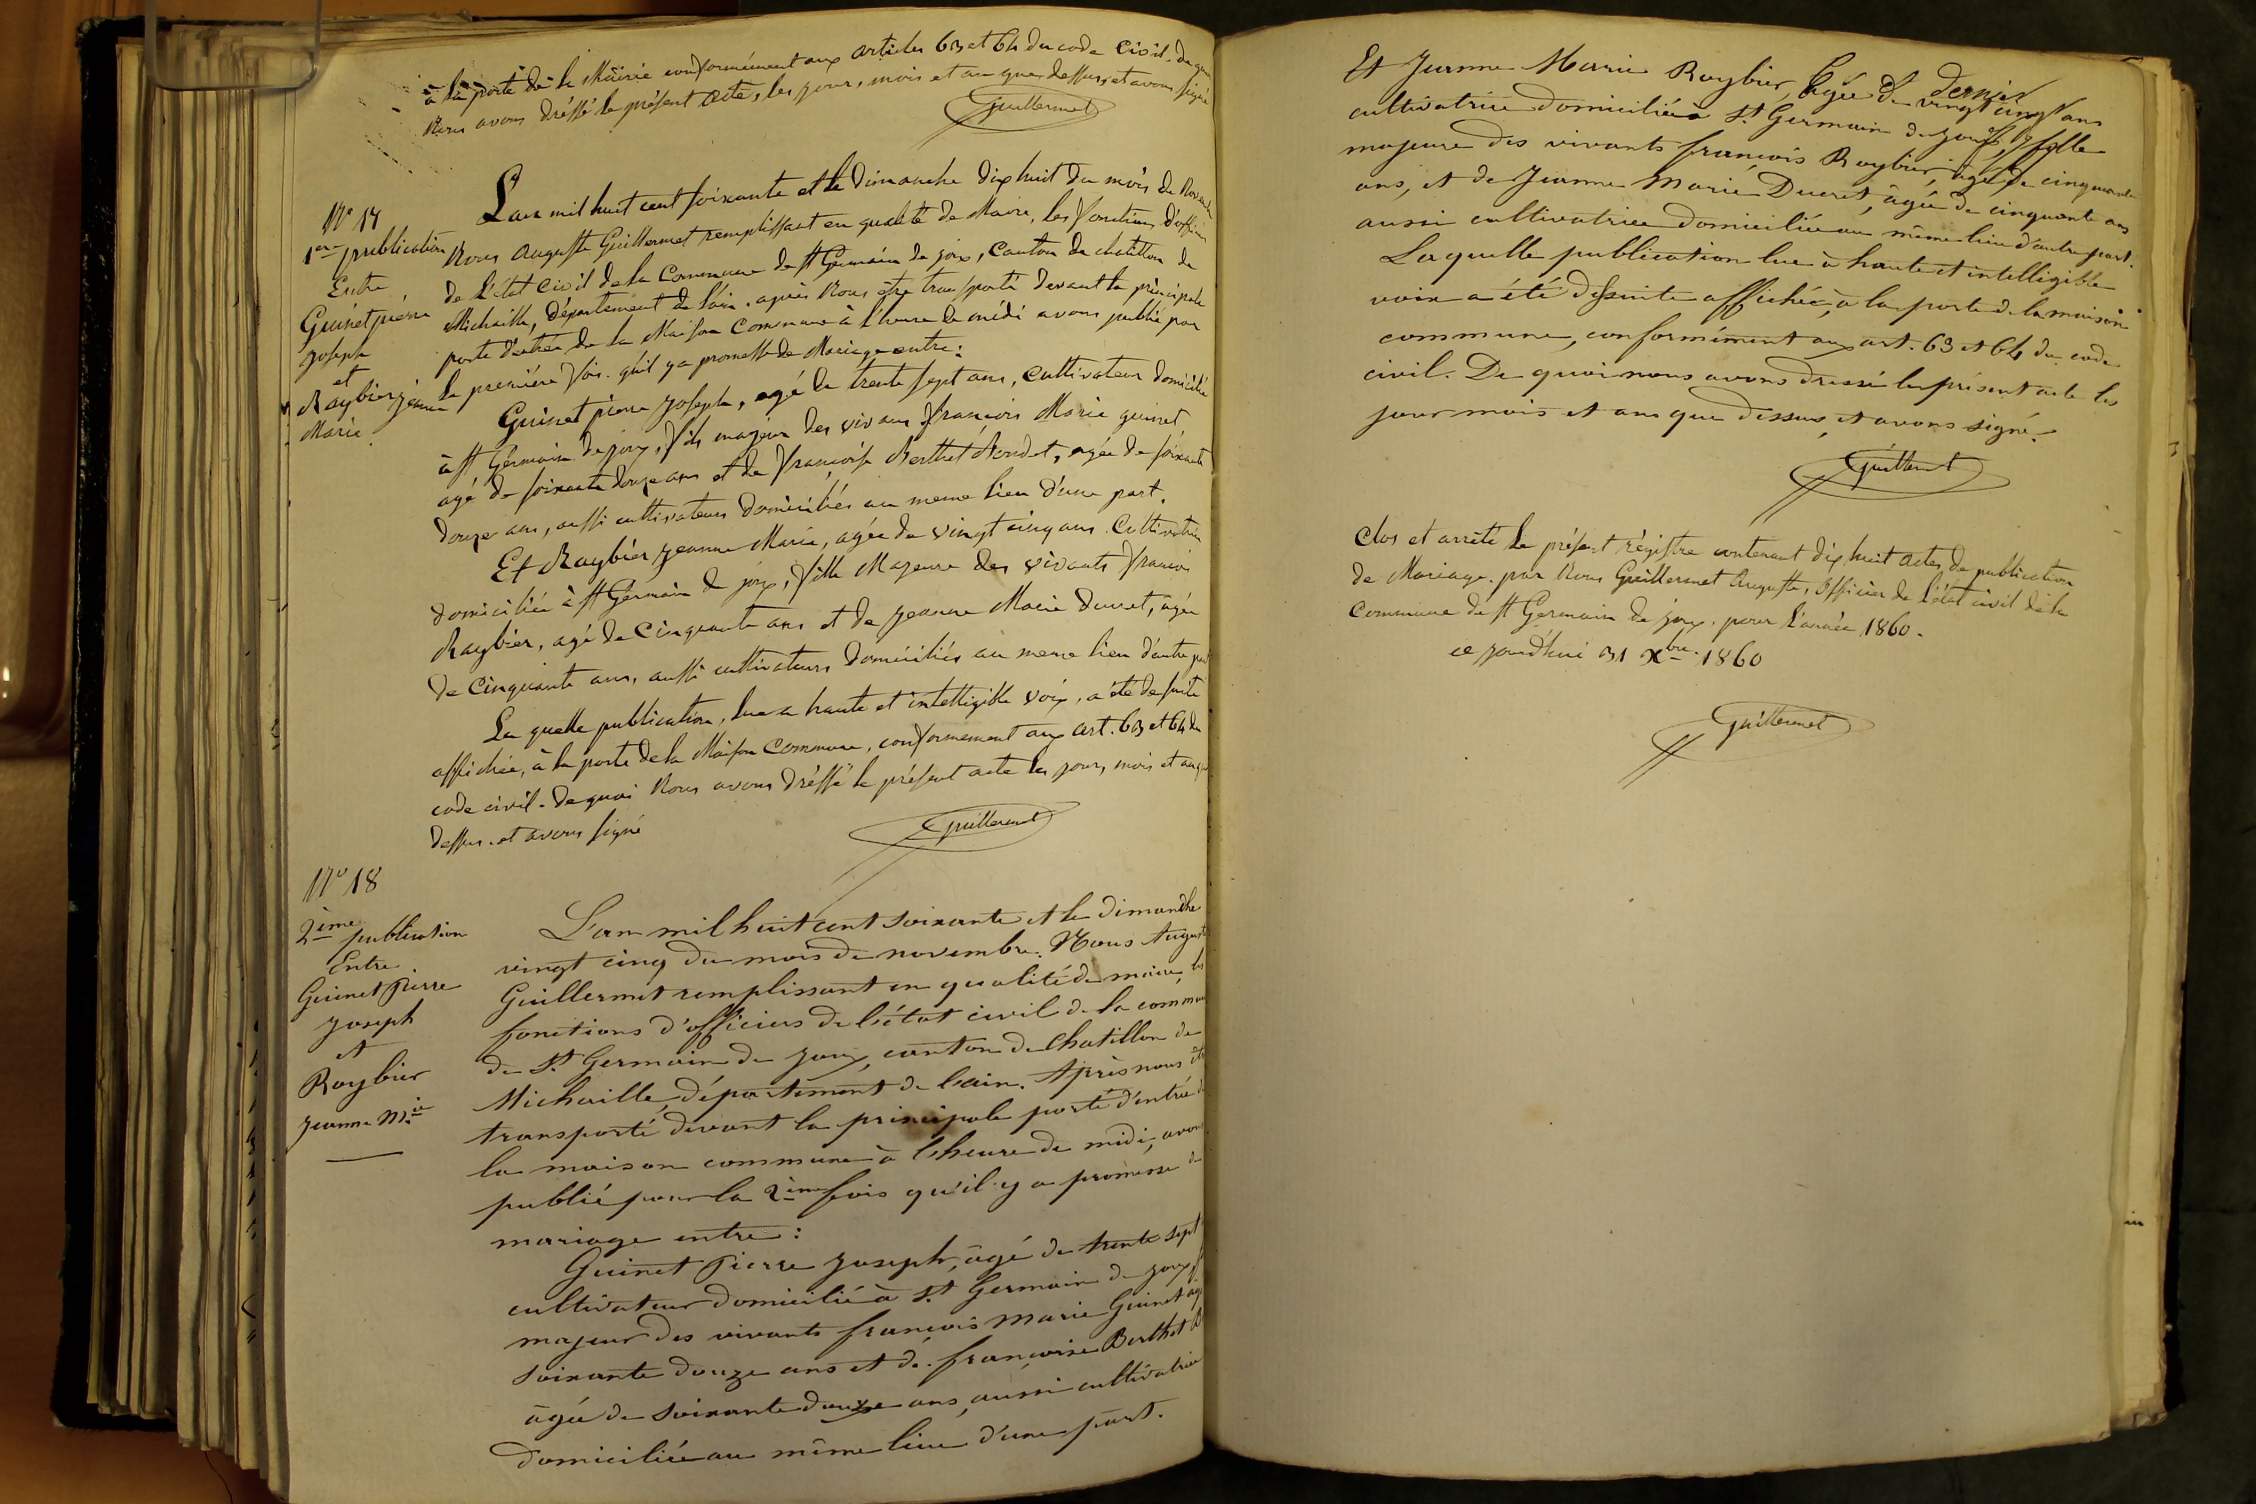 à la porte de la Mairie conformément aux articles 63 et 64 du code civil. de quoi
Nous avons dréssé le présent acte, les jour, mois et an que dessus, et avons signé
Guillermet
N° 17
1ere publication
Entre
Guinet pierre
joseph
et
Raybier jeanne
Marie.
L'an mil huit cent soixante et le dimanche dix huit du mois de Novembre
Nous auguste Guillermet remplissant en qualité de Maire, les fonctions d'officier
de l'état civil de la Commune de St Germain de joux, Canton de chatillon de
Michaille, département de l'ain. après Nous être transporté devant la principale
porte d'entrée de la Maison Commune à l'heure de midi avons publié pour
la première fois. qu'il y a promesse de Mariage entre:
Guinet pierre joseph, agé de trente sept ans, cultivateur domicilié
à St Germain de joux, fils majeur des vivans françois Marie guinet,
agé de soixante douze ans et de françoise Berthet Bondet, agée de soixante
douze ans, aussi cultivateurs domiciliés au meme lieu d'une part.
Et Raybier jeanne Marie, agée de vingt cinq ans Cultivatrice
domiciliée à St Germain de joux, fille Majeure des vivants francois
Raybier, agé de Cinquante ans et de jeanne Marie Ducret, agée
de Cinquante ans, aussi cultivateurs domiciliés au meme lieu d'autre part
La quelle publication, lue a haute et intelligible voix, a été de suite
affichée, à la porte de la Maison Commune, conformement aux art. 63 et 64 du
code civil. de quoi Nous avons dréssé le présent acte les jour, mois et an que
dessus. et avons signé
Guillermet
N° 18
2ème publication
Entre
Guinet Pierre
Joseph
et
Raybier
Jeanne Mie
L'an mil huit cent soixante et le dimanche
vingt cinq du mois de novembre. Nous Auguste
Guillermet remplissant en qualité de maire, les
fonctions d'officiers de l'état civil de la commune
de St Germain de joux, canton de Chatillon de
Michaille, département de l'ain. Après nous être
transporté devant la principale porte d'entrée de
la maison commune à l'heure de midi, avons
publié pour la 2ème fois qu'il y a promesse de
mariage entre:
Guinet Pierre Joseph, âgé de trente sept
cultivateur domicilié à St Germain de joux, f
majeur des vivants françois Marie Guinet agé
soixante douze ans et de françoise Berthet B
âgée de soixante douze ans, aussi cultivatrice
domiciliée au même lieu d'une part.
dernier
Et Jeanne Marie Raybier, âgée de vingt cinq ans
cultivatrice domiciliée à St Germain de joux, fille
majeure des vivants françois Raybier, âgé de cinquante
ans, et de Jeanne Marie Ducret, âgée de cinquante ans
aussi cultivatrice domiciliée au même lieu d'autre part.
Laquelle publication lue à haute et intelligible
voix a été de suite affichée, à la porte de la maison
commune, conformément aux art. 63 et 64 du code
civil. De quoi nous avons dressé le présent acte les
jour mois et an que dessus, et avons signé.
Guillermet
Clos et arrêté le présent régistre contenant dix huit actes de publication
de Mariage. par Nous Guillermet Auguste, Officier de l'état civil de la
Commune de St Germain de joux. pour l'année 1860.
ce jourd'hui 31 Xbre 1860
Guillermet